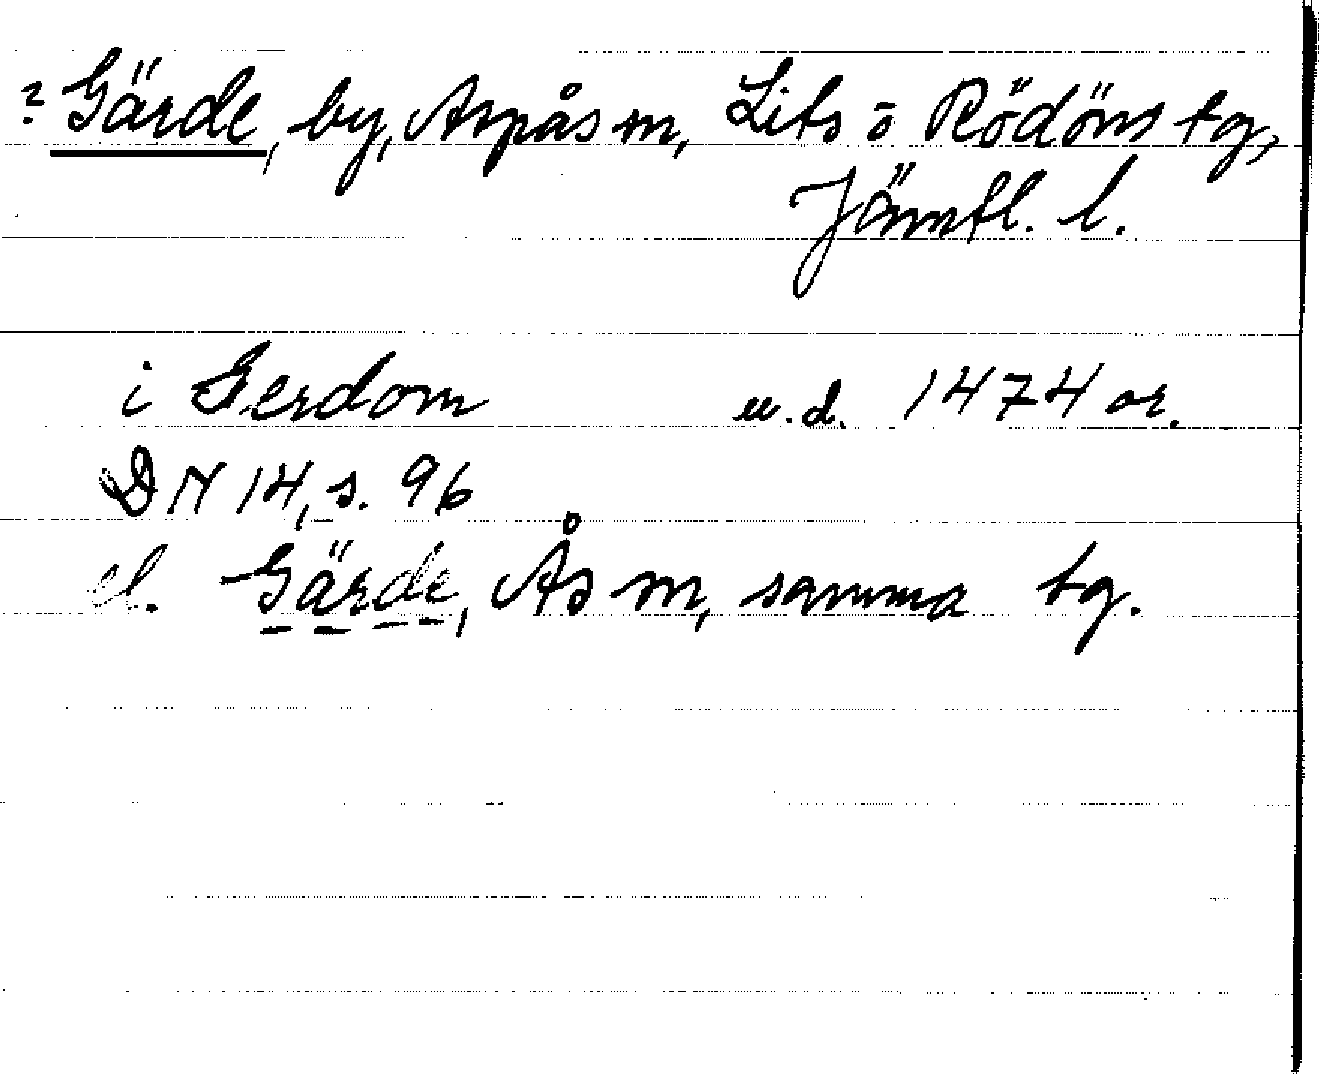 ? Gärde, by, Aspås sn, Lits o Rödöns tg,
Jämtl. l.
i Gerdom u.d. 1474 or.
DN 14, s. 96
el. Gärde, Ås sn, samma tg.